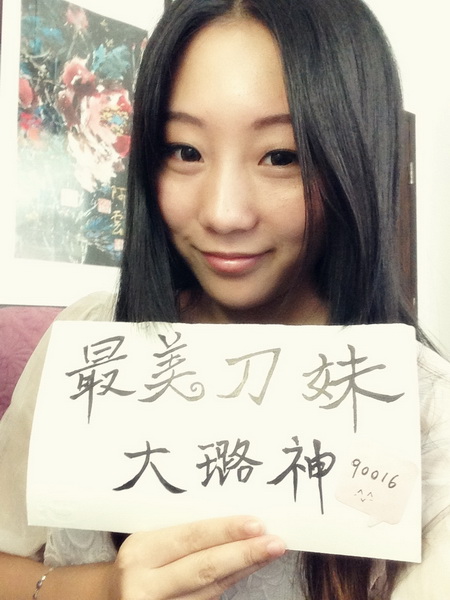 最美刀妹
大璐神
90016
^^